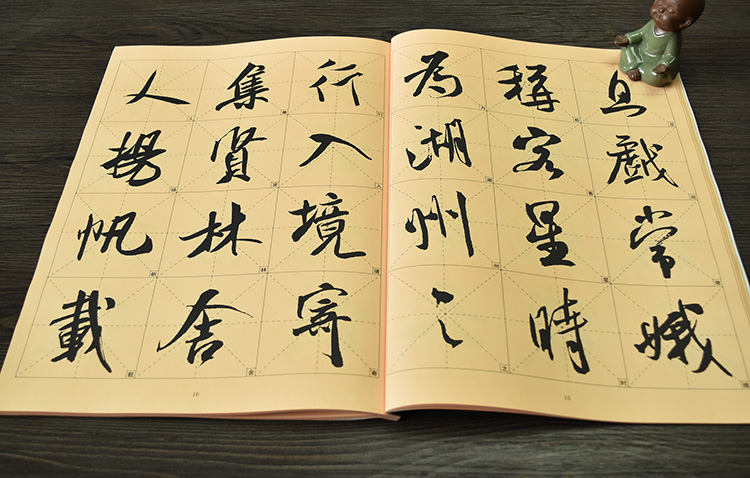 且戲常娥
稱客星時
為湖州之
15
行入境寄
集賢林舍
人揚帆載
16